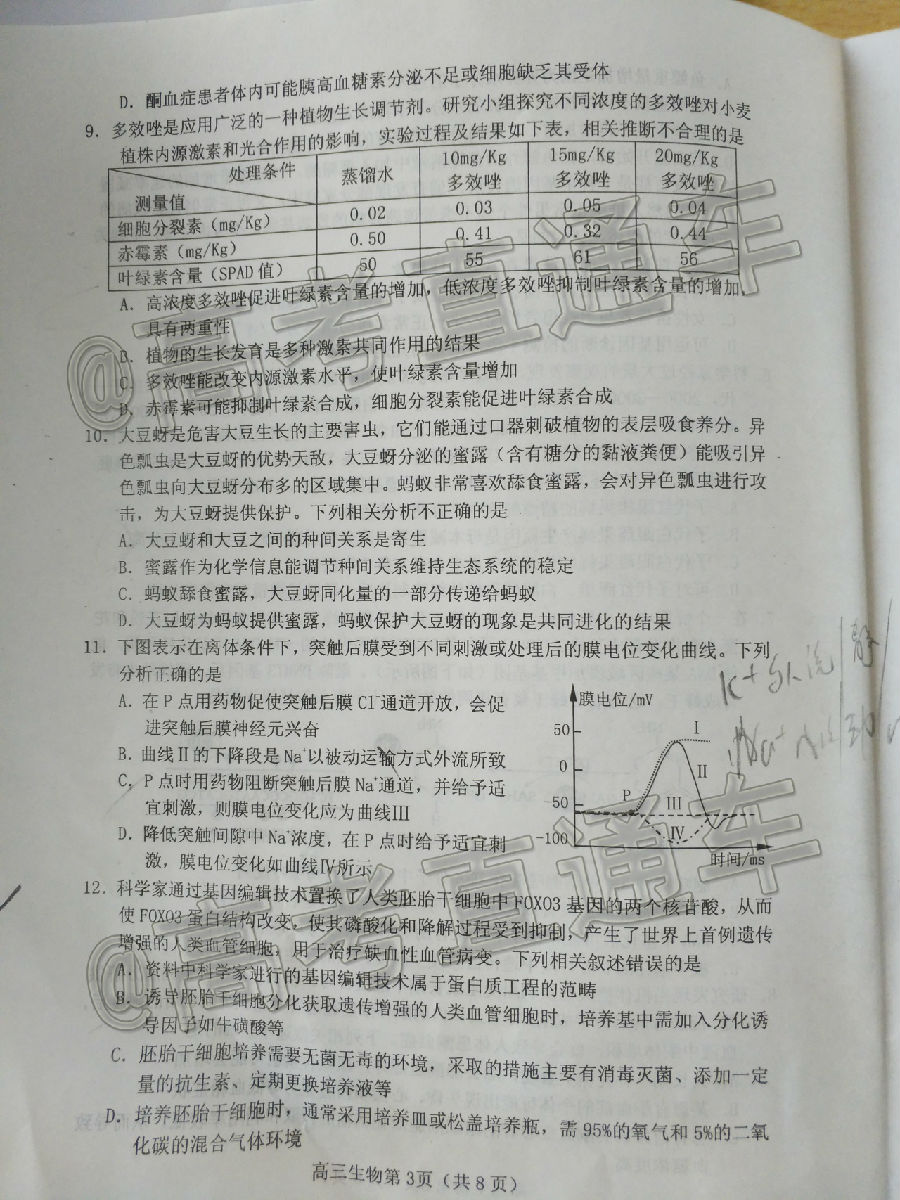 D. 酮血症患者体内可能胰高血糖素分泌不足或细胞缺乏其受体
9. 多效唑是应用广泛的一种植物生长调节剂。研究小组探究不同浓度的多效唑对小麦
植株内源激素和光合作用的影响，实验过程及结果如下表，相关推断不合理的是
处理条件
测量值
蒸馏水
10mg/Kg
多效唑
15mg/Kg
多效唑
20mg/Kg
多效唑
细胞分裂素（mg/Kg） 0.02 0.03 0.05 0.04
赤霉素（mg/Kg） 0.50 0.41 0.32 0.44
叶绿素含量（SPAD 值） 50 55 61 56
A. 高浓度多效唑促进叶绿素含量的增加，低浓度多效唑抑制叶绿素含量的增加，
具有两重性
B. 植物的生长发育是多种激素共同作用的结果
C. 多效唑能改变内源激素水平，使叶绿素含量增加
D. 赤霉素可能抑制叶绿素合成，细胞分裂素能促进叶绿素合成
10. 大豆蚜是危害大豆生长的主要害虫，它们能通过口器刺破植物的表层吸食养分。异
色瓢虫是大豆蚜的优势天敌，大豆蚜分泌的蜜露（含有糖分的黏液粪便）能吸引异
色瓢虫向大豆蚜分布多的区域集中。蚂蚁非常喜欢舔食蜜露，会对异色瓢虫进行攻
击，为大豆蚜提供保护。下列相关分析不正确的是
A. 大豆蚜和大豆之间的种间关系是寄生
B. 蜜露作为化学信息能调节种间关系维持生态系统的稳定
C. 蚂蚁舔食蜜露，大豆蚜同化量的一部分传递给蚂蚁
D. 大豆蚜为蚂蚁提供蜜露，蚂蚁保护大豆蚜的现象是共同进化的结果
11. 下图表示在离体条件下，突触后膜受到不同刺激或处理后的膜电位变化曲线。下列
分析正确的是
A. 在 P 点用药物促使突触后膜 Cl⁻通道开放，会促
进突触后膜神经元兴奋
B. 曲线Ⅱ的下降段是 Na⁺以被动运输方式外流所致
C. P 点时用药物阻断突触后膜 Na⁺通道，并给予适
宜刺激，则膜电位变化应为曲线Ⅲ
D. 降低突触间隙中 Na⁺浓度，在 P 点时给予适宜刺
激，膜电位变化如曲线Ⅳ所示
膜电位/mV
50
0
50
-100
P
Ⅰ
Ⅱ
Ⅲ
Ⅳ
时间/ms
K+外流/静
12. 科学家通过基因编辑技术置换了人类胚胎干细胞中 FOXO3 基因的两个核苷酸，从而
使 FOXO3 蛋白结构改变，使其磷酸化和降解过程受到抑制，产生了世界上首例遗传
增强的人类血管细胞，用于治疗缺血性血管病变。下列相关叙述错误的是
A. 资料中科学家进行的基因编辑技术属于蛋白质工程的范畴
B. 诱导胚胎干细胞分化获取遗传增强的人类血管细胞时，培养基中需加入分化诱
导因子如牛磺酸等
C. 胚胎干细胞培养需要无菌无毒的环境，采取的措施主要有消毒灭菌、添加一定
量的抗生素、定期更换培养液等
D. 培养胚胎干细胞时，通常采用培养皿或松盖培养瓶，需 95%的氧气和 5%的二氧
化碳的混合气体环境
高三生物第 3页（共 8 页）
@高考直通车
@高考直通车